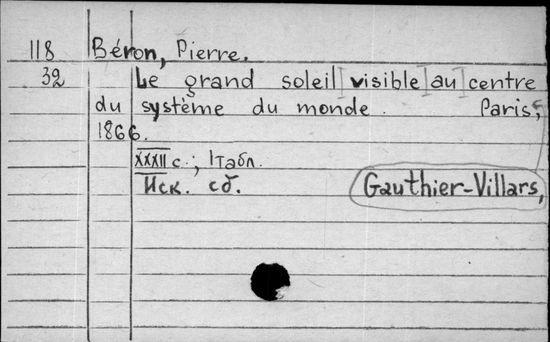 118 Béron, Pierre.
32 Le grand soleil visible au centre
du système du monde. Paris,
1866.
XXXII с.; 1 табл.
Иск. сб. Gauthier-Villars,